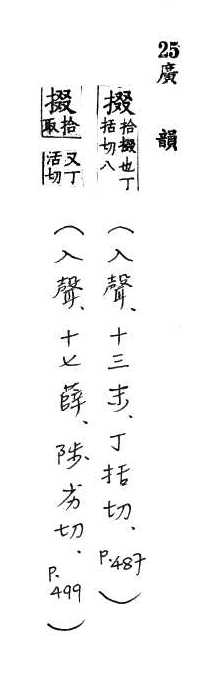 25廣韻
掇拾掇也丁括切八(入聲、十三末、丁括切、P.487)
掇拾取又丁活切(入聲、十七薛、陟劣切、P.499)